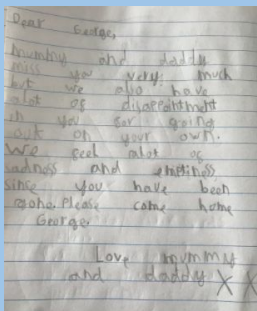 Dear George,
mummy and daddy
miss you very much
but we also have
alot of disappointment
in you for going
out on your own.
We feel alot of
sadness and emptiness
since you have been
gone. Please come home
George.
Love mummy
and daddy X X